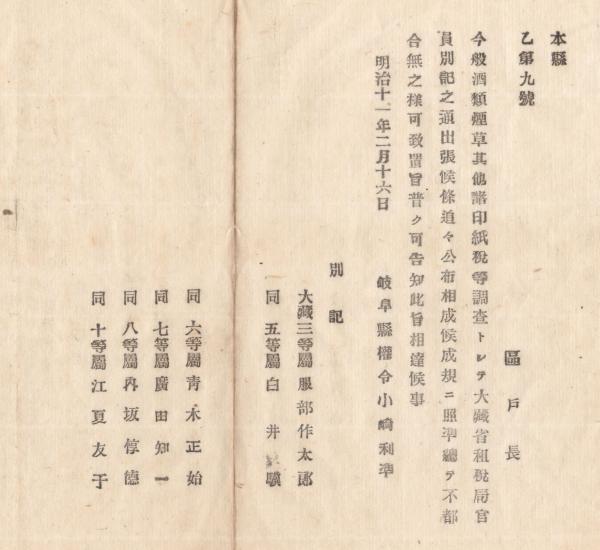 本縣
乙第九號
區戸長
今般酒類煙草其他諸印紙稅等調查トシテ大藏省租稅局官
員別記之通出張候條追々公布相成候成規ニ照準總テ不都
合無之樣可致置旨普ク可告知此旨相達候事
明治十一年二月十六日
岐阜縣權令小崎利準
別記
大藏三等屬服部作太郎
同五等屬白井
同六等屬青木正始
同七等屬廣田知一
同八等屬坂惇德
同十等屬江夏友于